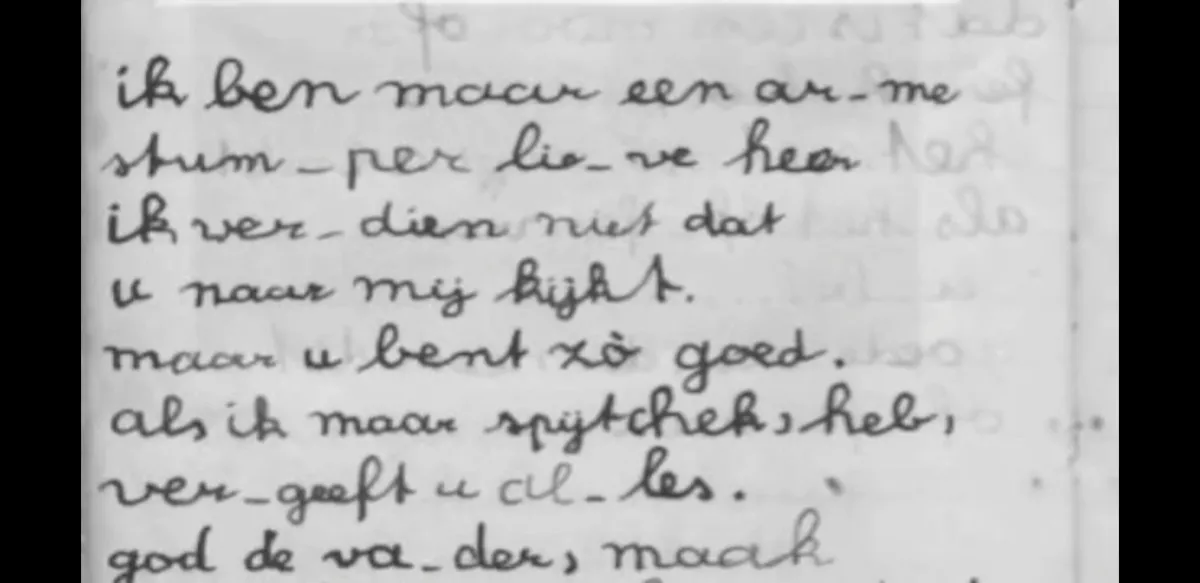 ik ben maar een ar-me
stum-per lie-ve heer
ik ver-dien niet dat
u naar mij kijkt.
maar u bent zò goed.
als ik maar spijt heb,
ver-geeft u al-les.
god de va-der, maak